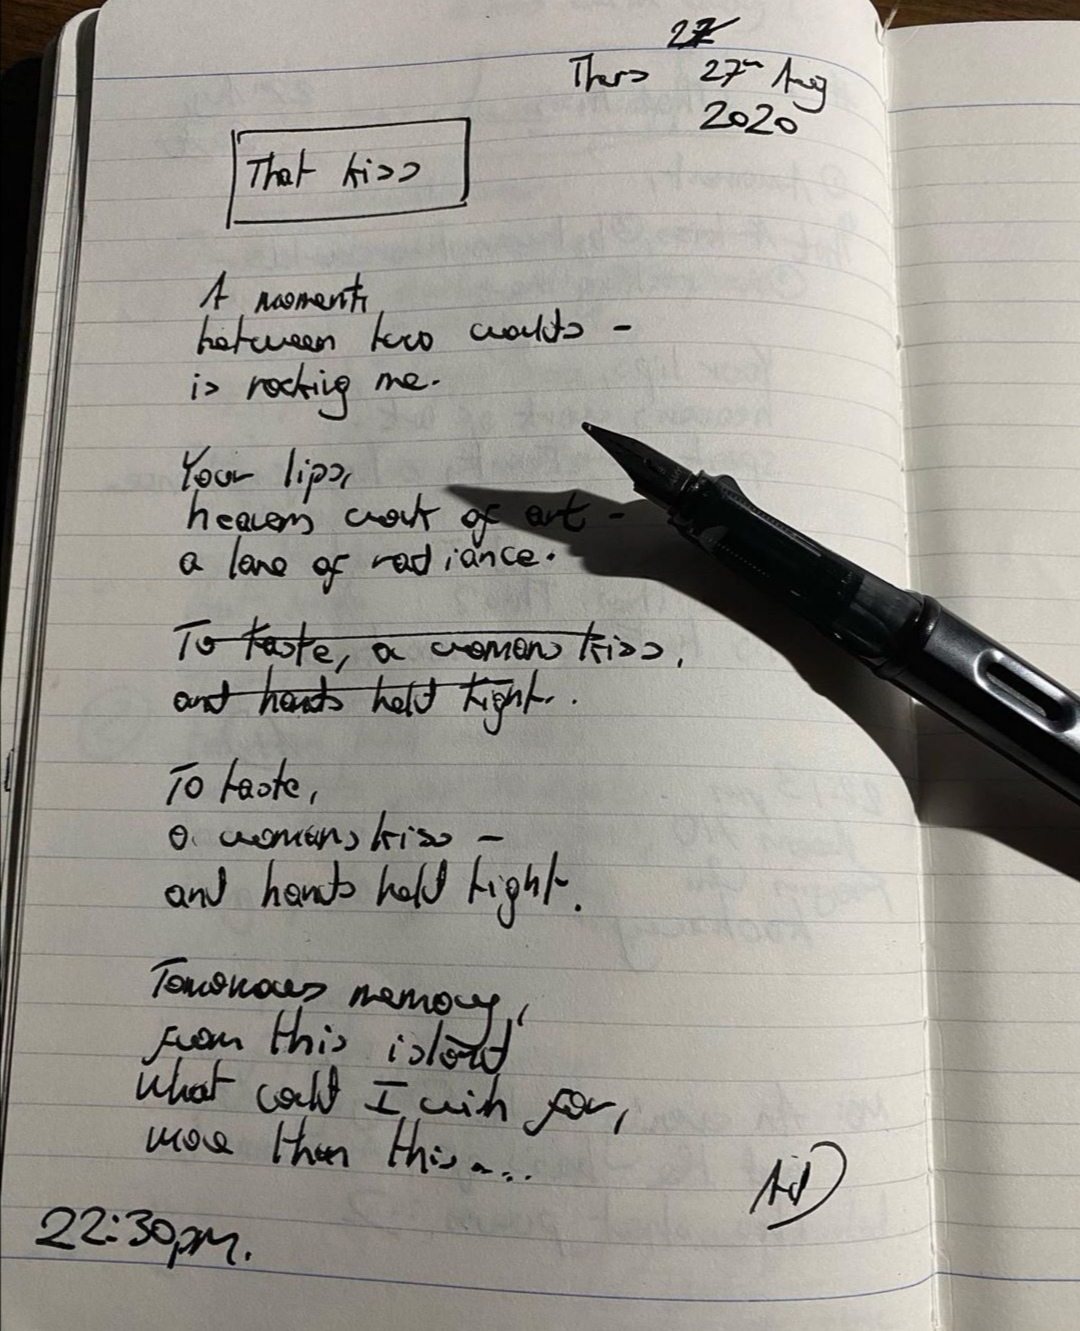 27
Thurs 27th Aug
2020
That kiss
A moment,
between two worlds -
is rocking me.
Your lips,
heavens work of art -
a lane of radiance.
To taste, a womans kiss,
and hands held tight.
To taste,
a womans kiss -
and hands held tight.
Tomorrows memory,
from this island
what could I wish for,
more than this...
22:30pm.